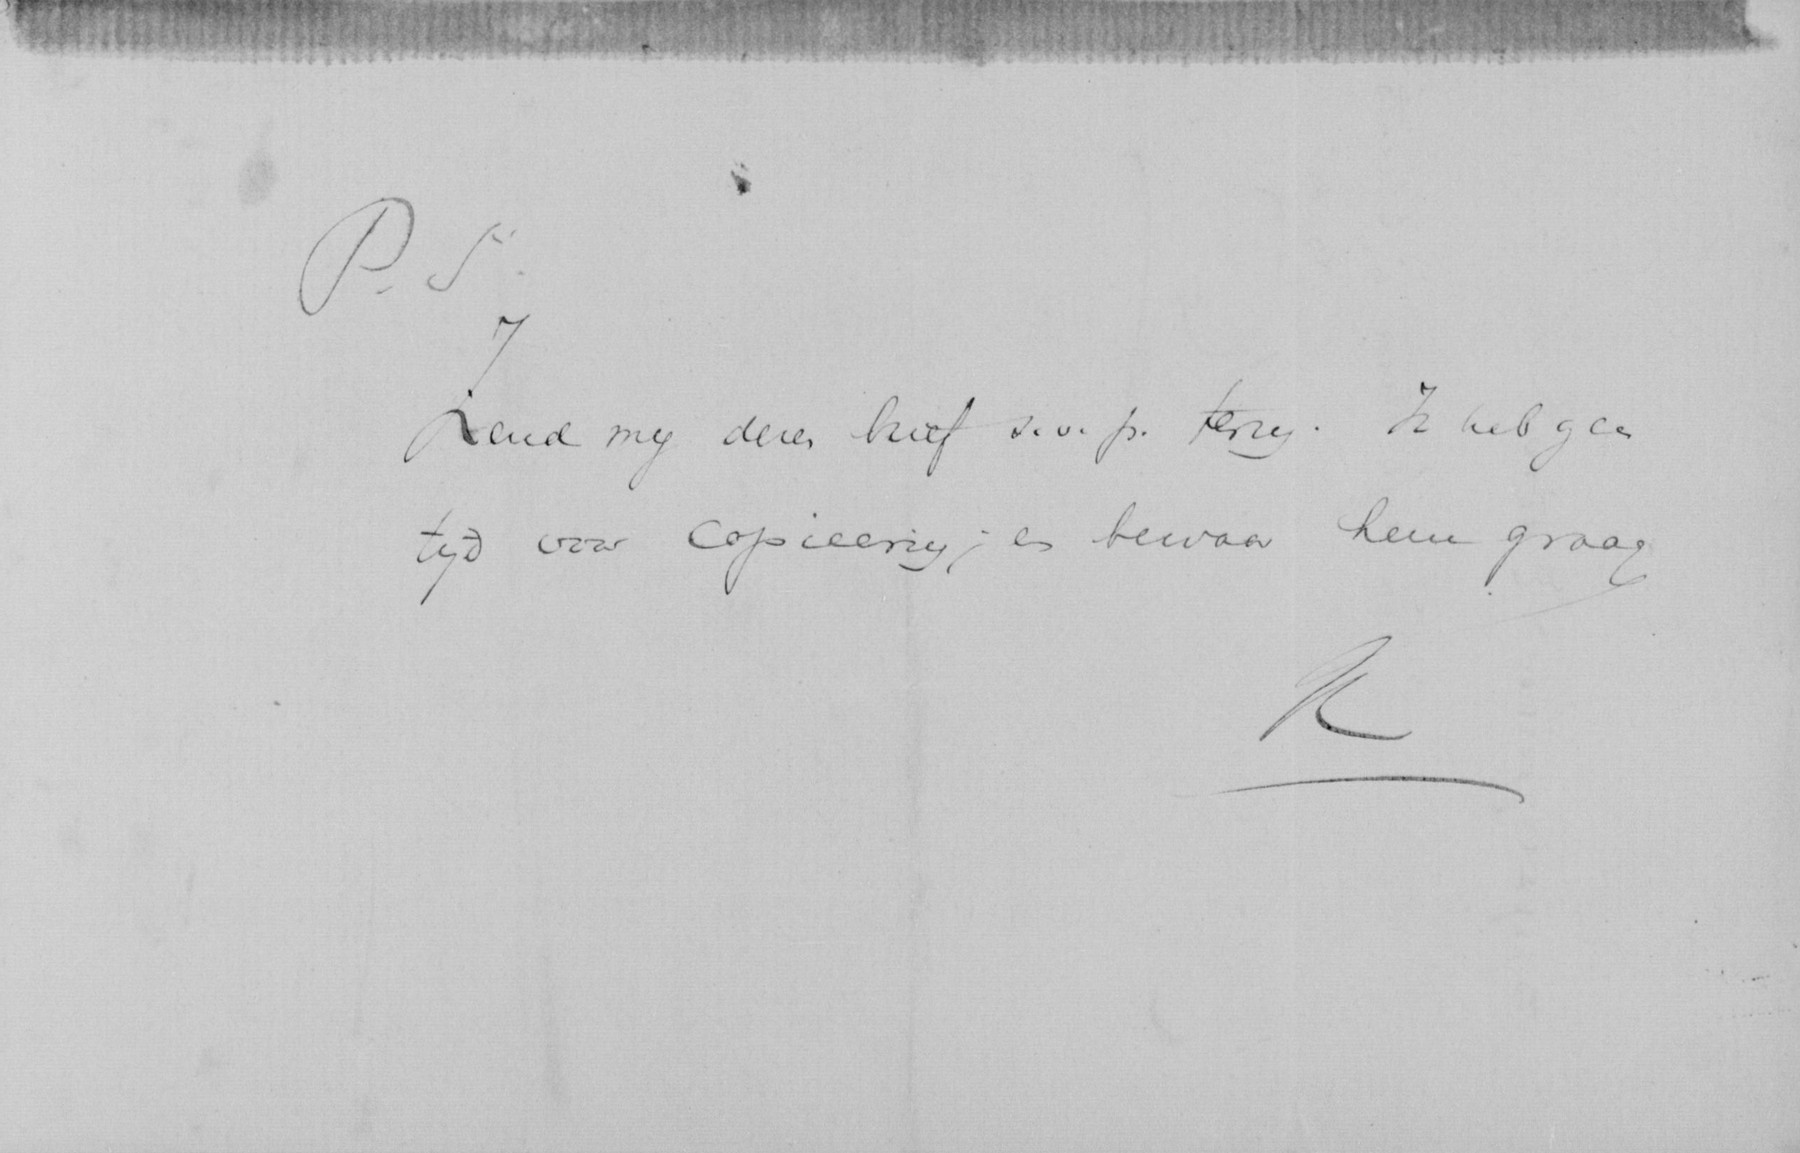 P. S.
Zend my dezen brief s.v.p. terug. Ik heb geen
tyd voor copieering; en bewaar hem graag
K